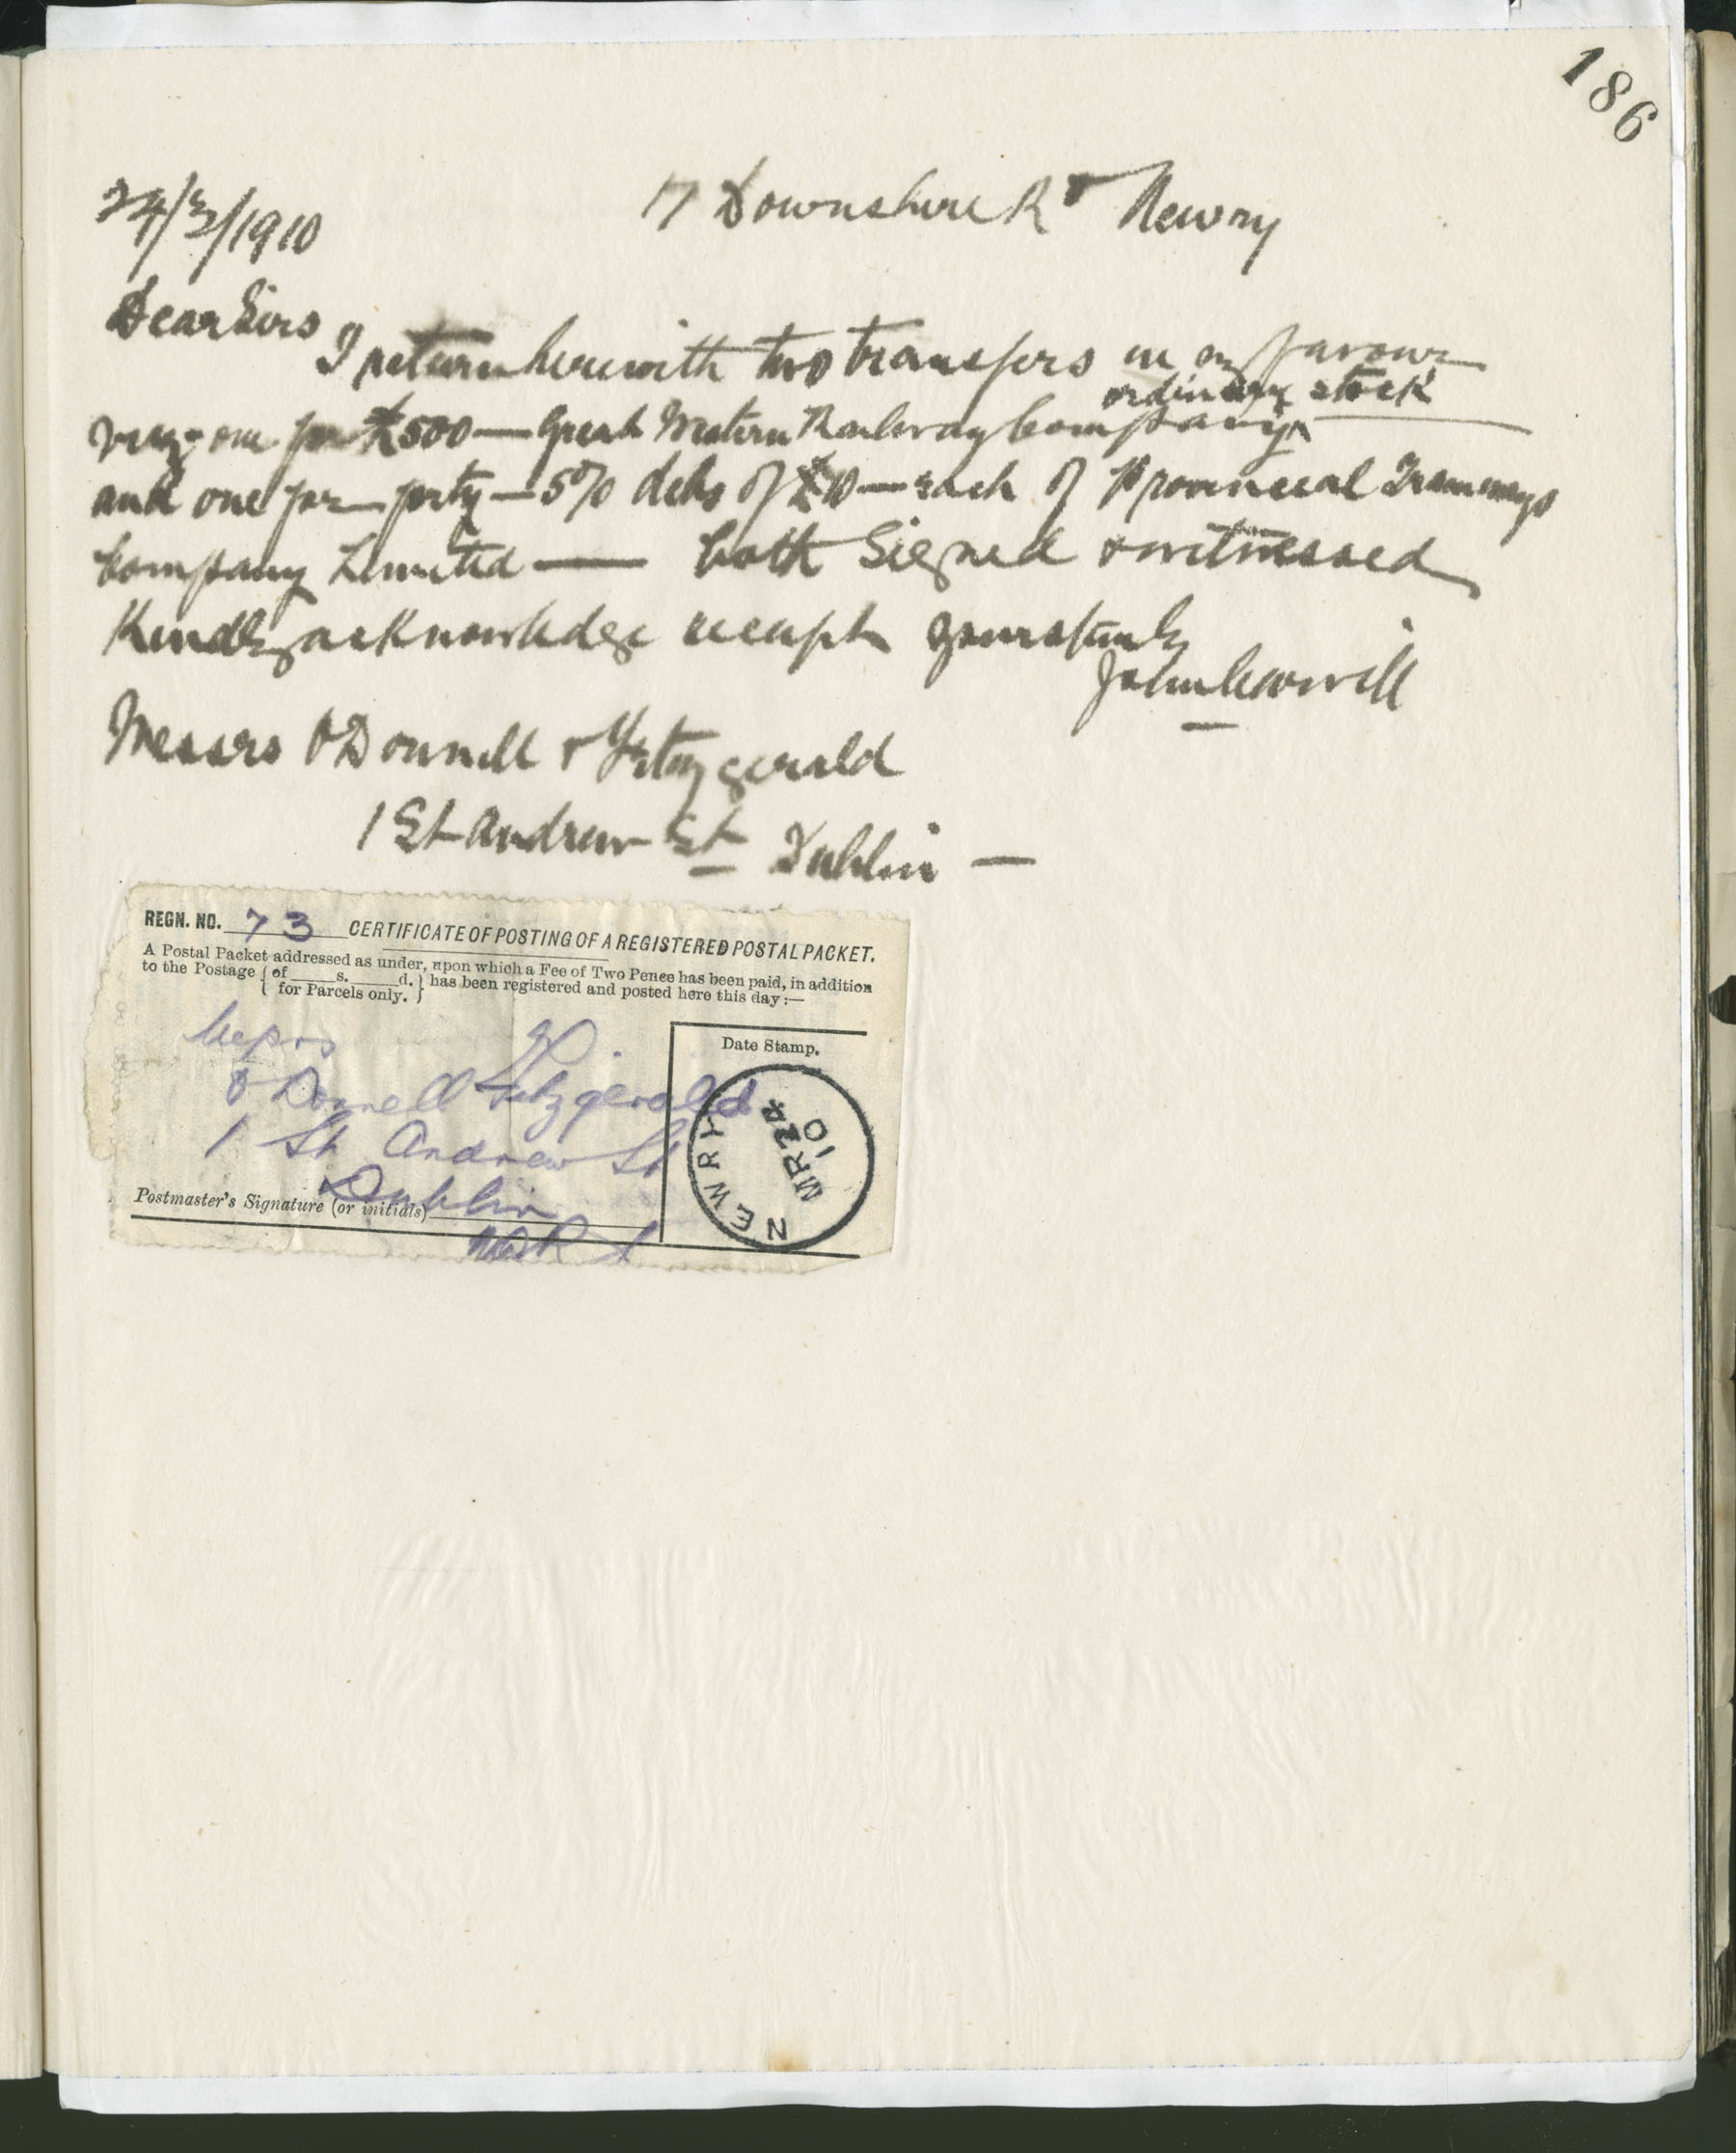 186
24/3/1910
17 Downshire Rd Newry
Dear Sirs
I return herewith two transfers in my favour
ordinary stock
viz; one for £500 — Great Western Railway Company ^
and one for forty — 5% debs of £10 — each of Provincial Tramways
Company Limited — both Signed & witnessed
Kindly acknowledge receipt yours truly
John
Messrs O'Donnell & Fitzgerald
1 St Andrew St Dublin —
REGN. NO. 73 CERTIFICATE OF POSTING OF A REGISTERED POSTAL PACKET.
A Postal Packet addressed as under, upon which a Fee of Two Pence has been paid, in addition
to the Postage { of ____ s. ____ d. } has been registered and posted here this day :—
for Parcels only.
Date Stamp.
Messrs
O'Donnell & Fitzgerald
1 St Andrew St
Dublin
Postmaster's Signature (or initials)
NEWRY
MR 24
10